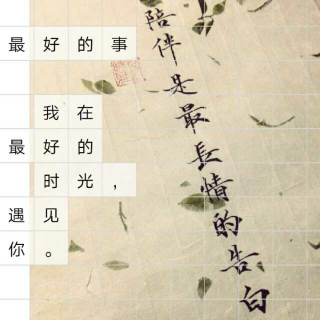 最好的事
我在
最好的
时光，
遇见
你。
陪伴是最長情的告白